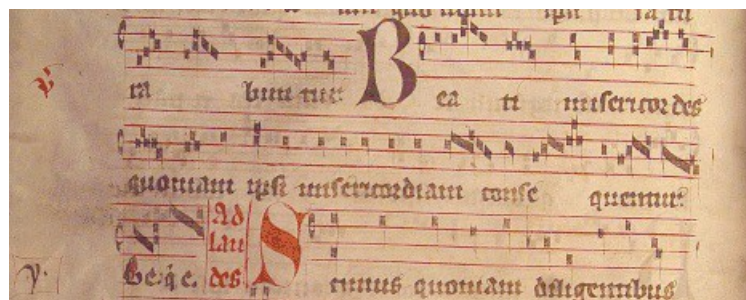 ra buntur Beati misericordes
quoniam ipsi misericordiam consequentur.
Ad
lau
des Scimus quoniam diligentibus